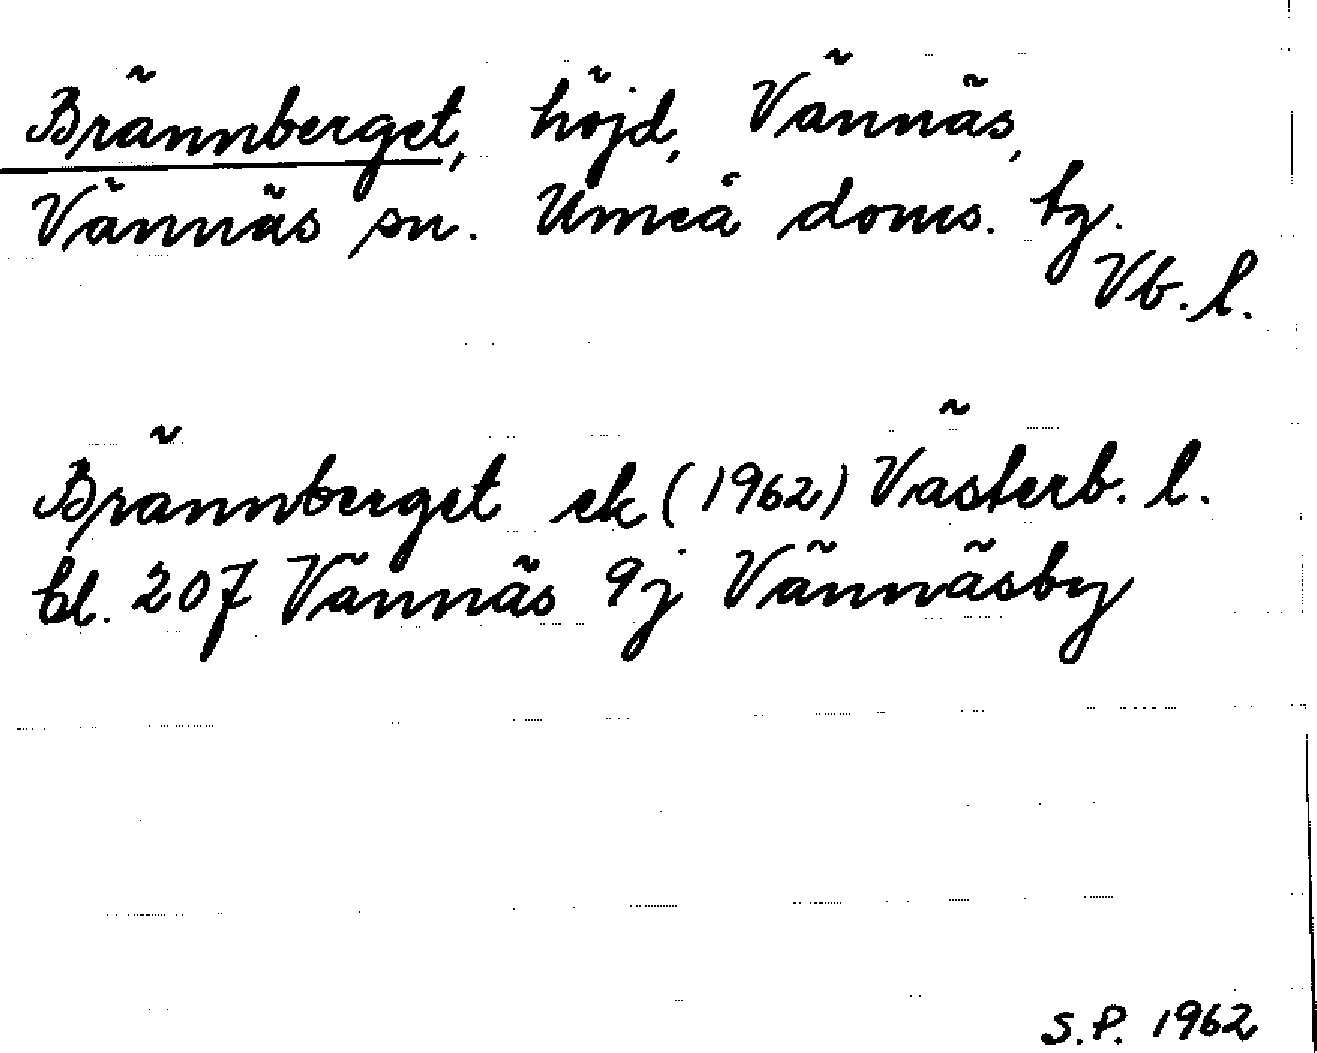 Brännberget, höjd, Vännäs,
Vännäs sn. Umeå doms. tg.
Vb. l.
Brännberget ek (1962) Västerb. l.
bl. 207 Vännäs 9j Vännäsby
S.P. 1962